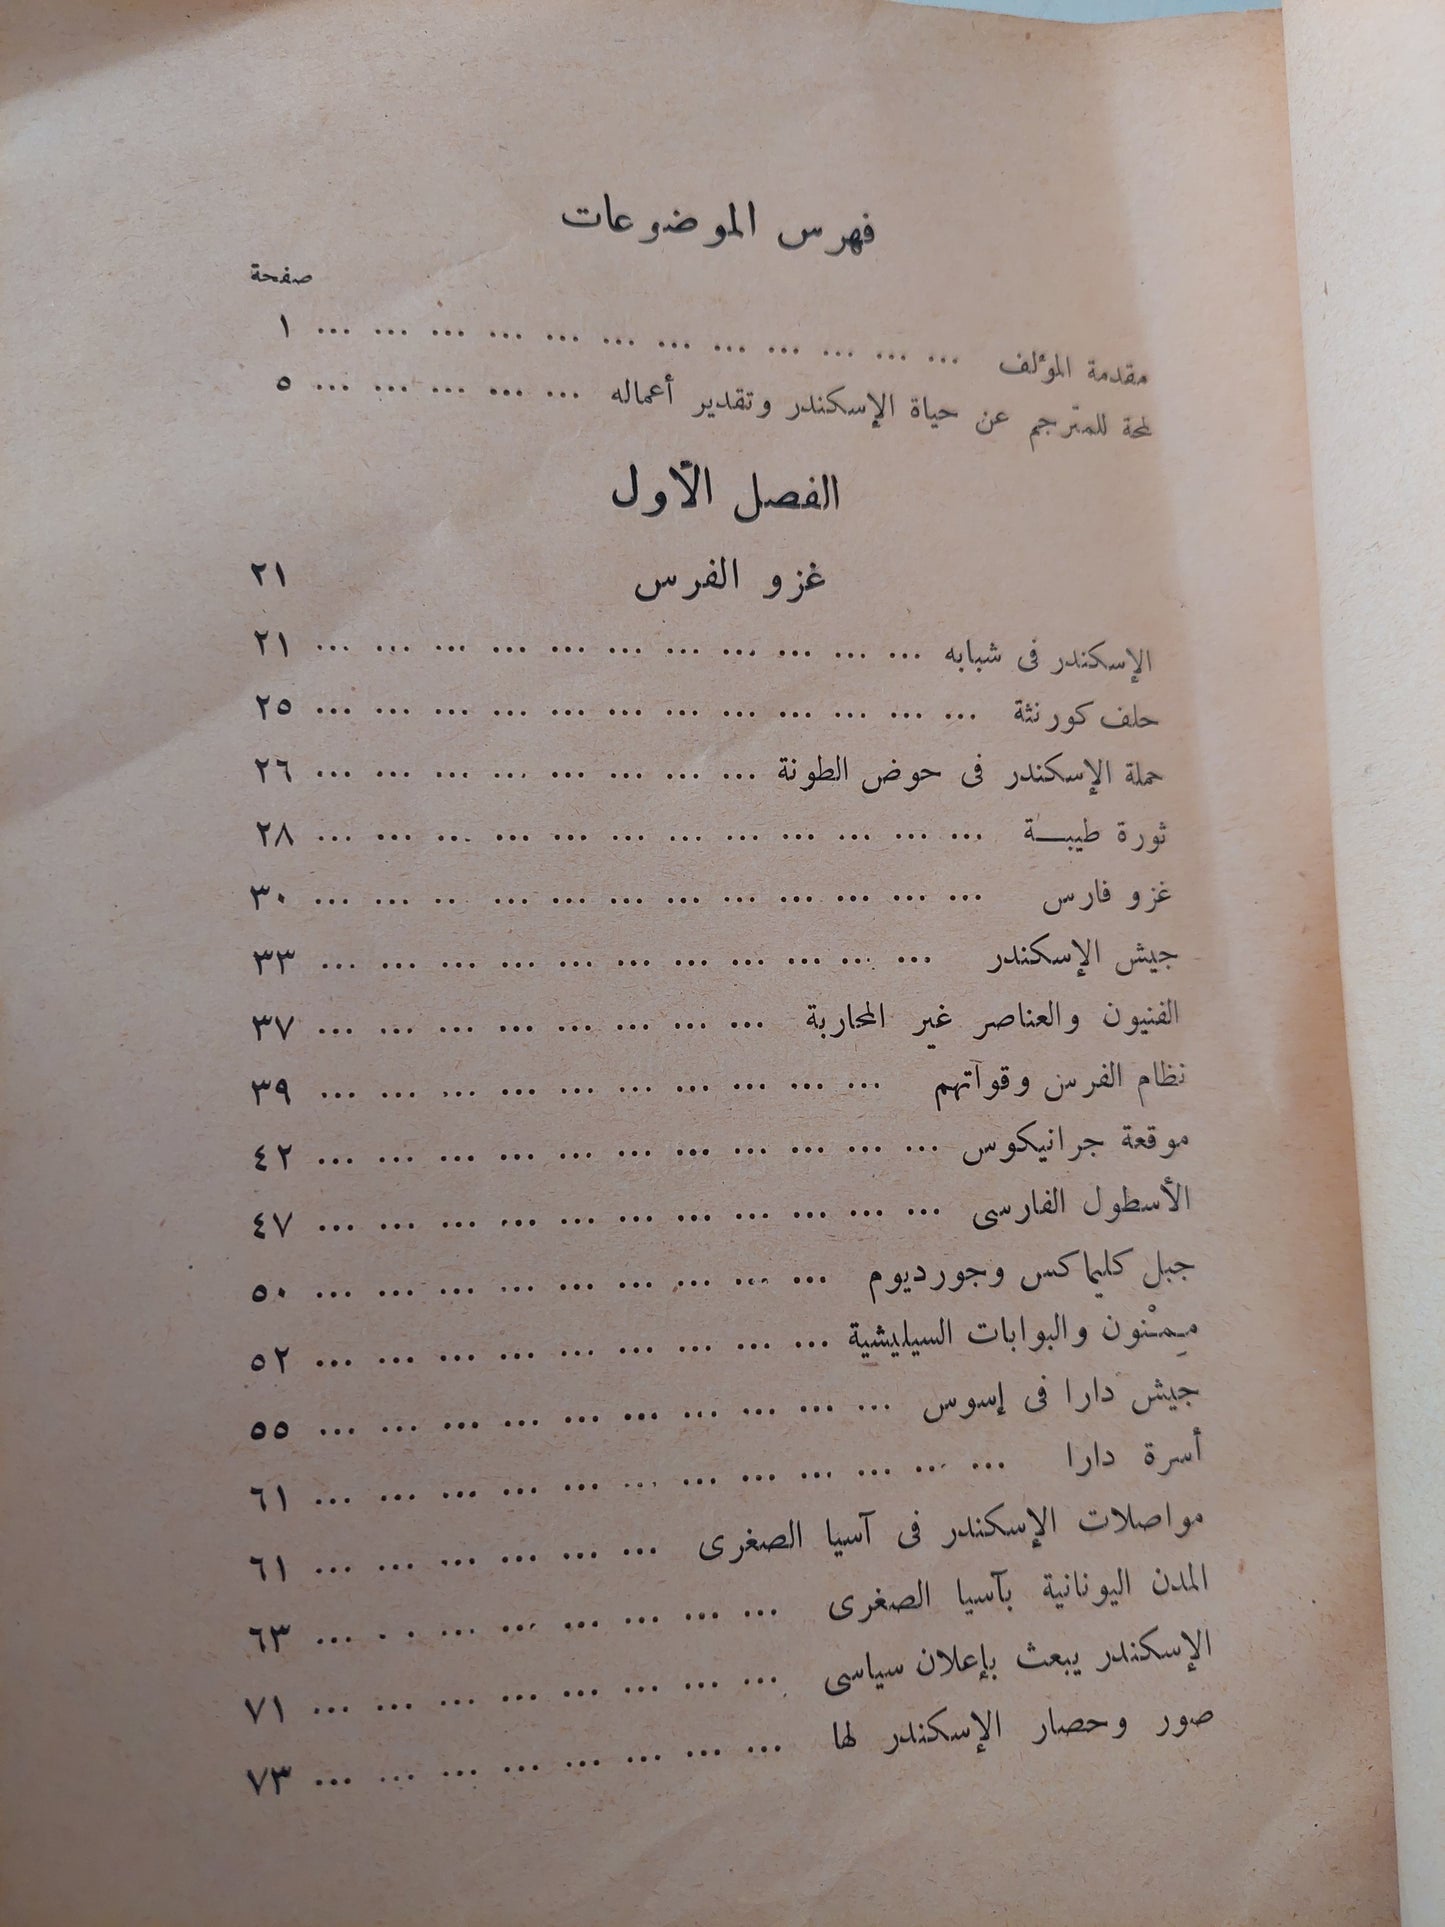 فهرس الموضوعات
صفحة
مقدمة المؤلف ... ... ... ... ... ... ... ... ... ... ... ... ١
لمحة للمترجم عن حياة الإسكندر وتقدير أعماله ... ... ... ... ... ٥
الفصل الأول
غزو الفرس ٢١
الإسكندر فى شبابه ... ... ... ... ... ... ... ... ... ... ... ٢١
حلف كورنثة ... ... ... ... ... ... ... ... ... ... ... ... ٢٥
حملة الإسكندر فى حوض الطونة ... ... ... ... ... ... ... ... ٢٦
ثورة طيبـــة ... ... ... ... ... ... ... ... ... ... ... ... ٢٨
غزو فارس ... ... ... ... ... ... ... ... ... ... ... ... ٣٠
جيش الإسكندر ... ... ... ... ... ... ... ... ... ... ... ٣٣
الفنيون والعناصر غير المحاربة ... ... ... ... ... ... ... ... ٣٧
نظام الفرس وقواتهم ... ... ... ... ... ... ... ... ... ... ٣٩
موقعة جرانيكوس ... ... ... ... ... ... ... ... ... ... ... ٤٢
الأسطول الفارسى ... ... ... ... ... ... ... ... ... ... ... ٤٧
جبل كليماكس وجورديوم ... ... ... ... ... ... ... ... ... ٥٠
مِمْنون والبوابات السيليشية ... ... ... ... ... ... ... ... ... ٥٢
جيش دارا فى إسوس ... ... ... ... ... ... ... ... ... ... ٥٥
أسرة دارا ... ... ... ... ... ... ... ... ... ... ... ... ٦١
مواصلات الإسكندر فى آسيا الصغرى ... ... ... ... ... ... ٦١
المدن اليونانية بآسيا الصغرى ... ... ... ... ... ... ... ... ٦٣
الإسكندر يبعث بإعلان سياسى ... ... ... ... ... ... ... ... ٧١
صور وحصار الإسكندر لها ... ... ... ... ... ... ... ... ٧٣